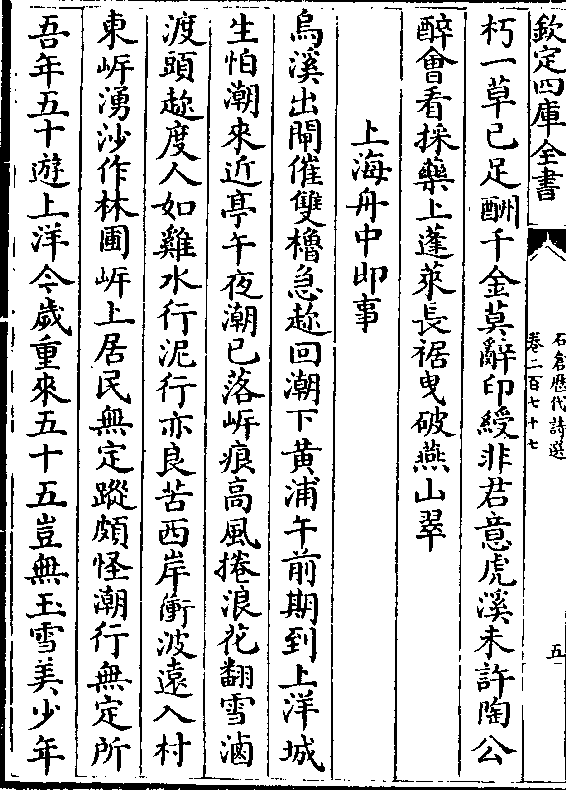 欽定四庫全書
石倉歷代詩選
卷二百七十七
五
朽一草已足酬千金莫辭印綬非君意虎溪未許陶公
醉會看採藥上蓬萊長裾曳破燕山翠
上海舟中即事
烏溪出閘催雙櫓急趂回潮下黃浦午前期到上洋城
生怕潮來近亭午夜潮已落㟁痕高風捲浪花翻雪滷
渡頭趂度人如雞水行泥行亦良苦西岸衝波遠入村
東㟁湧沙作林圃㟁上居民無定蹤頗怪潮行無定所
吾年五十遊上洋今歲重來五十五豈無玉雪美少年